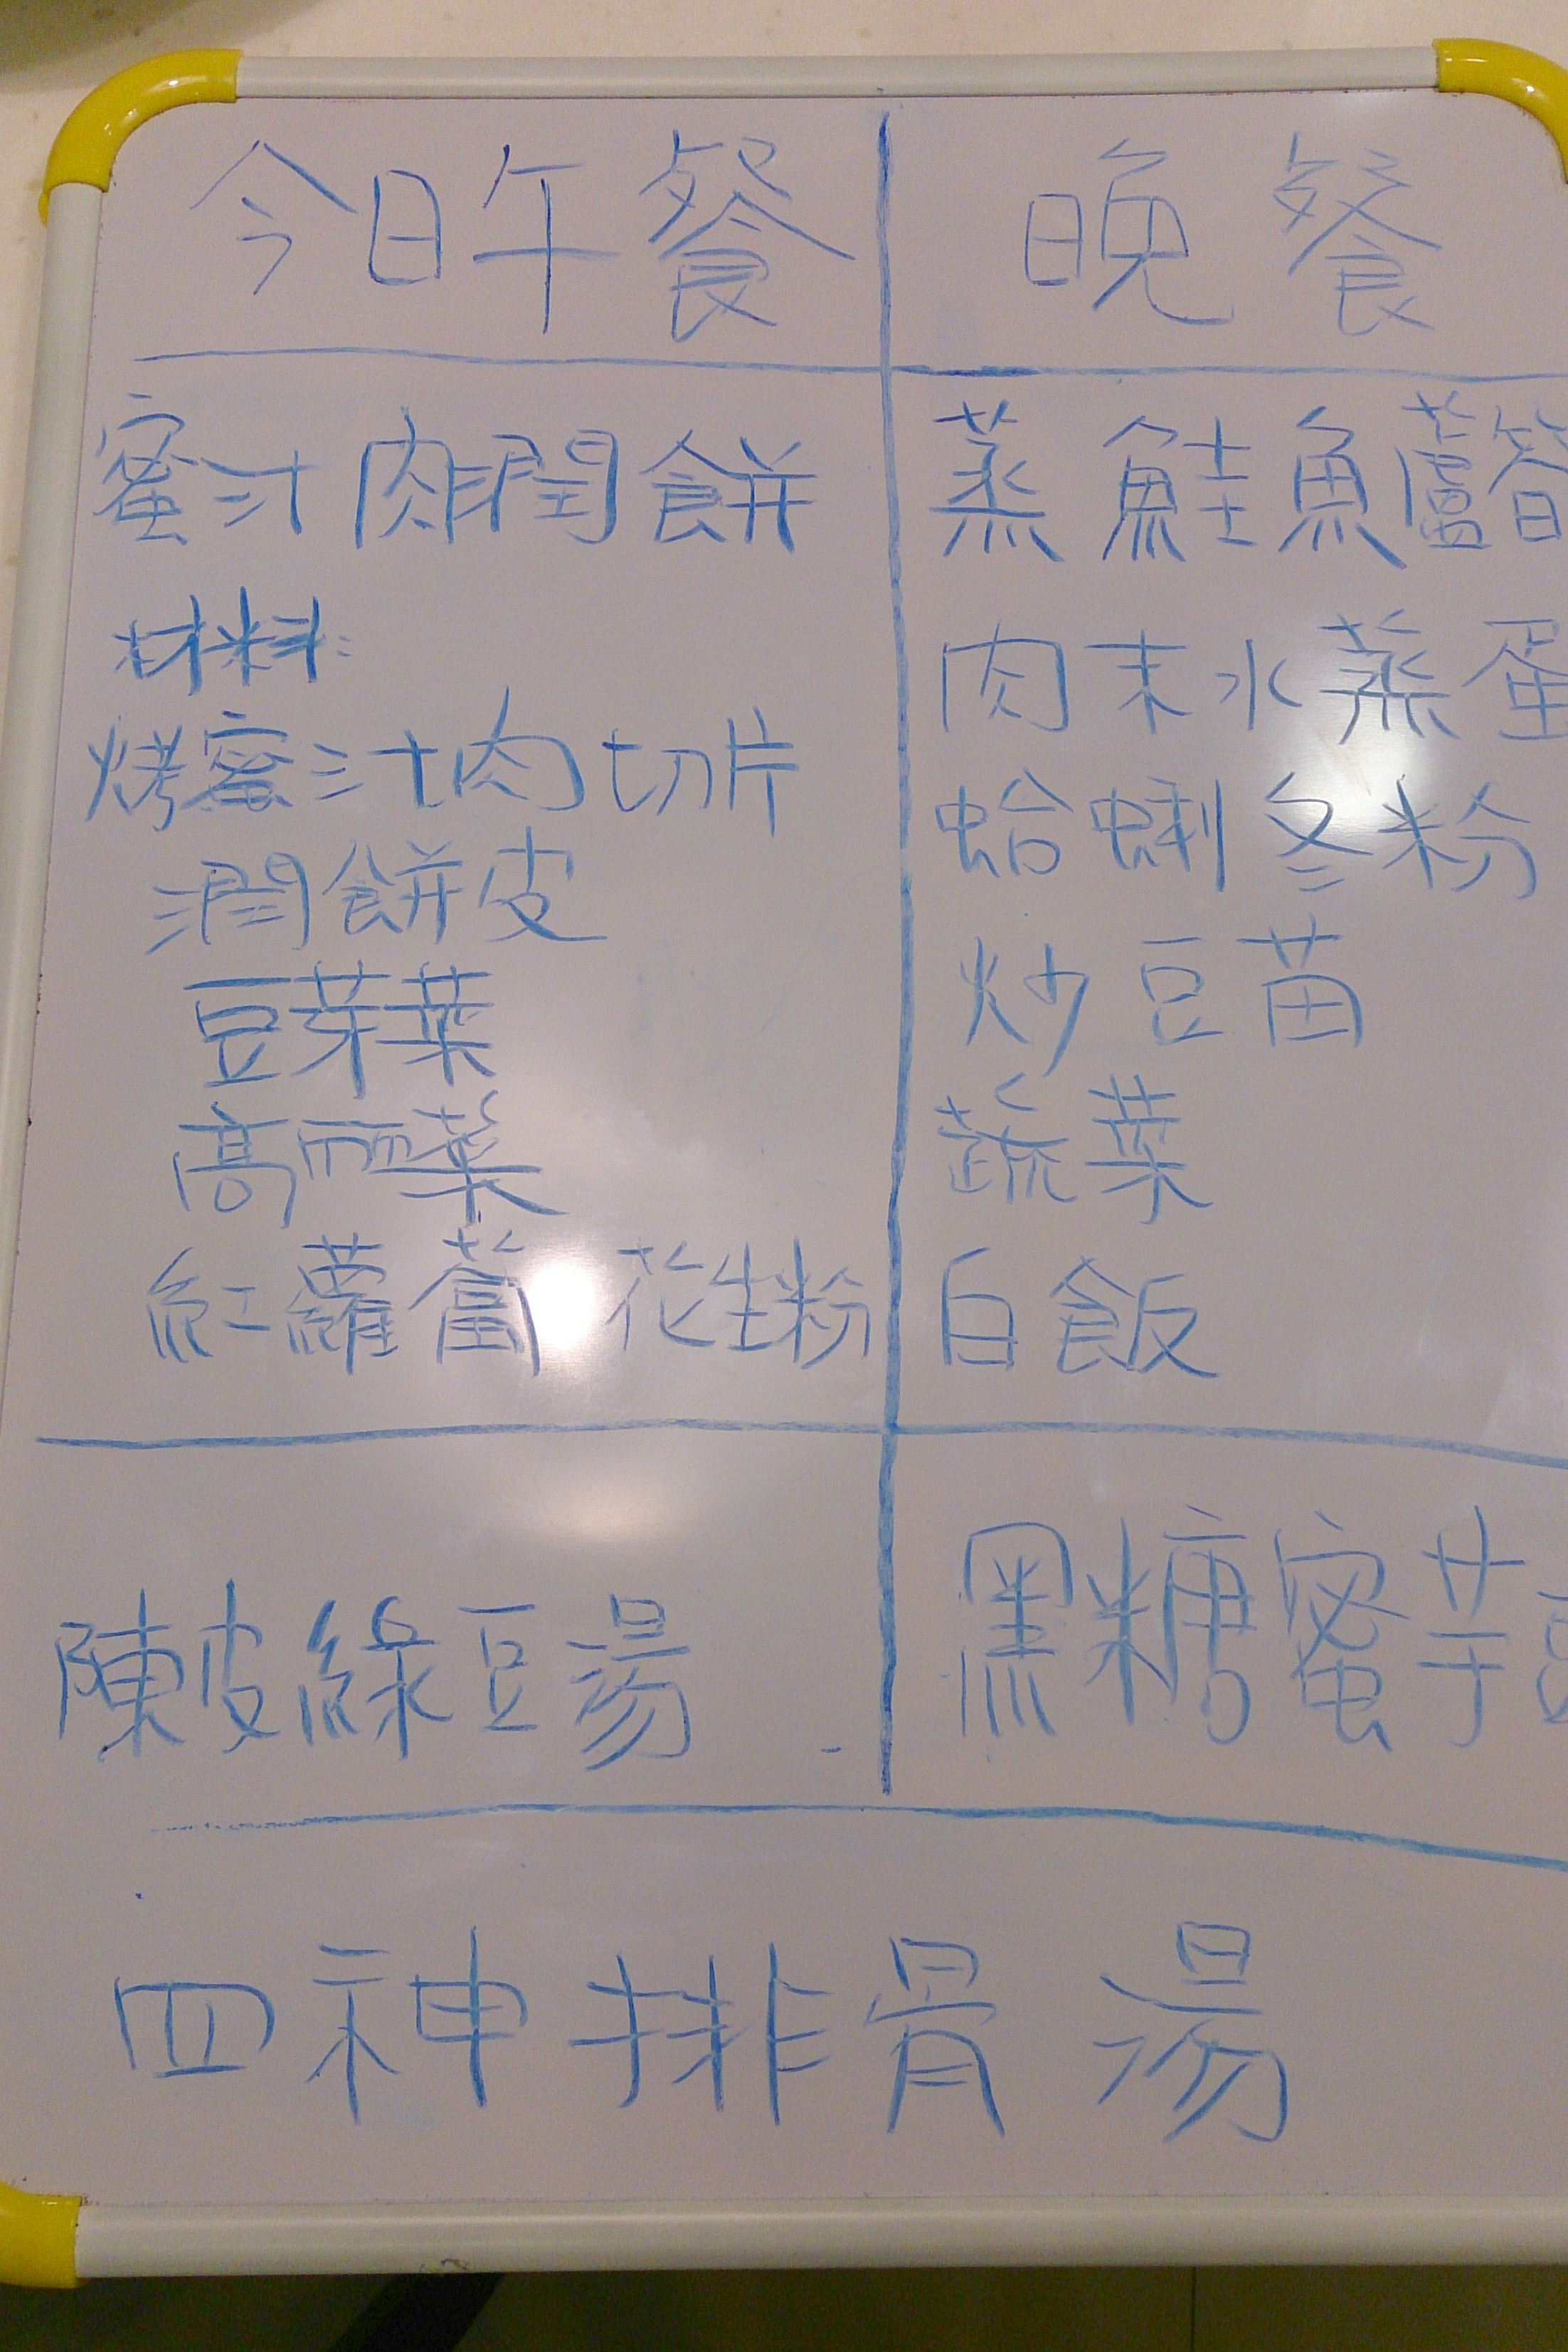 今日午餐
蜜汁肉潤餅
材料:
烤蜜汁肉切片
潤餅皮
豆芽菜
高丽菜
紅蘿蔔 花生粉
陳皮綠豆湯
晚餐
蒸鮭魚蘆筍
肉末水蒸蛋
蛤蜊冬粉
炒豆苗
蔬菜
白飯
黑糖蜜芋
四神排骨湯